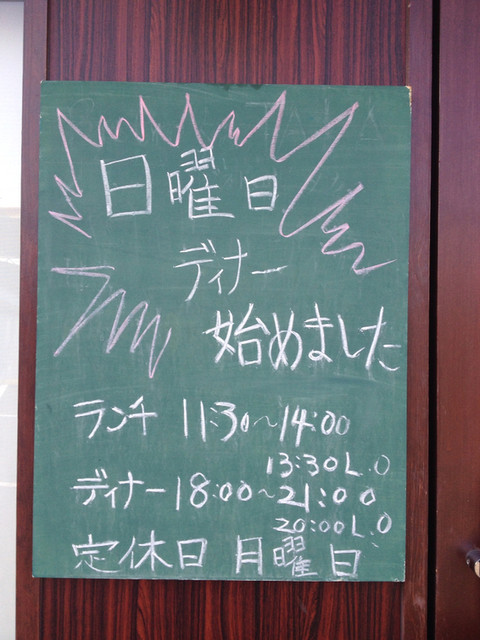 日曜日
ディナー
始めました
ランチ 11:30～14:00
13:30 L.O
ディナー 18:00～21:00
20:00 L.O
定休日 月曜日